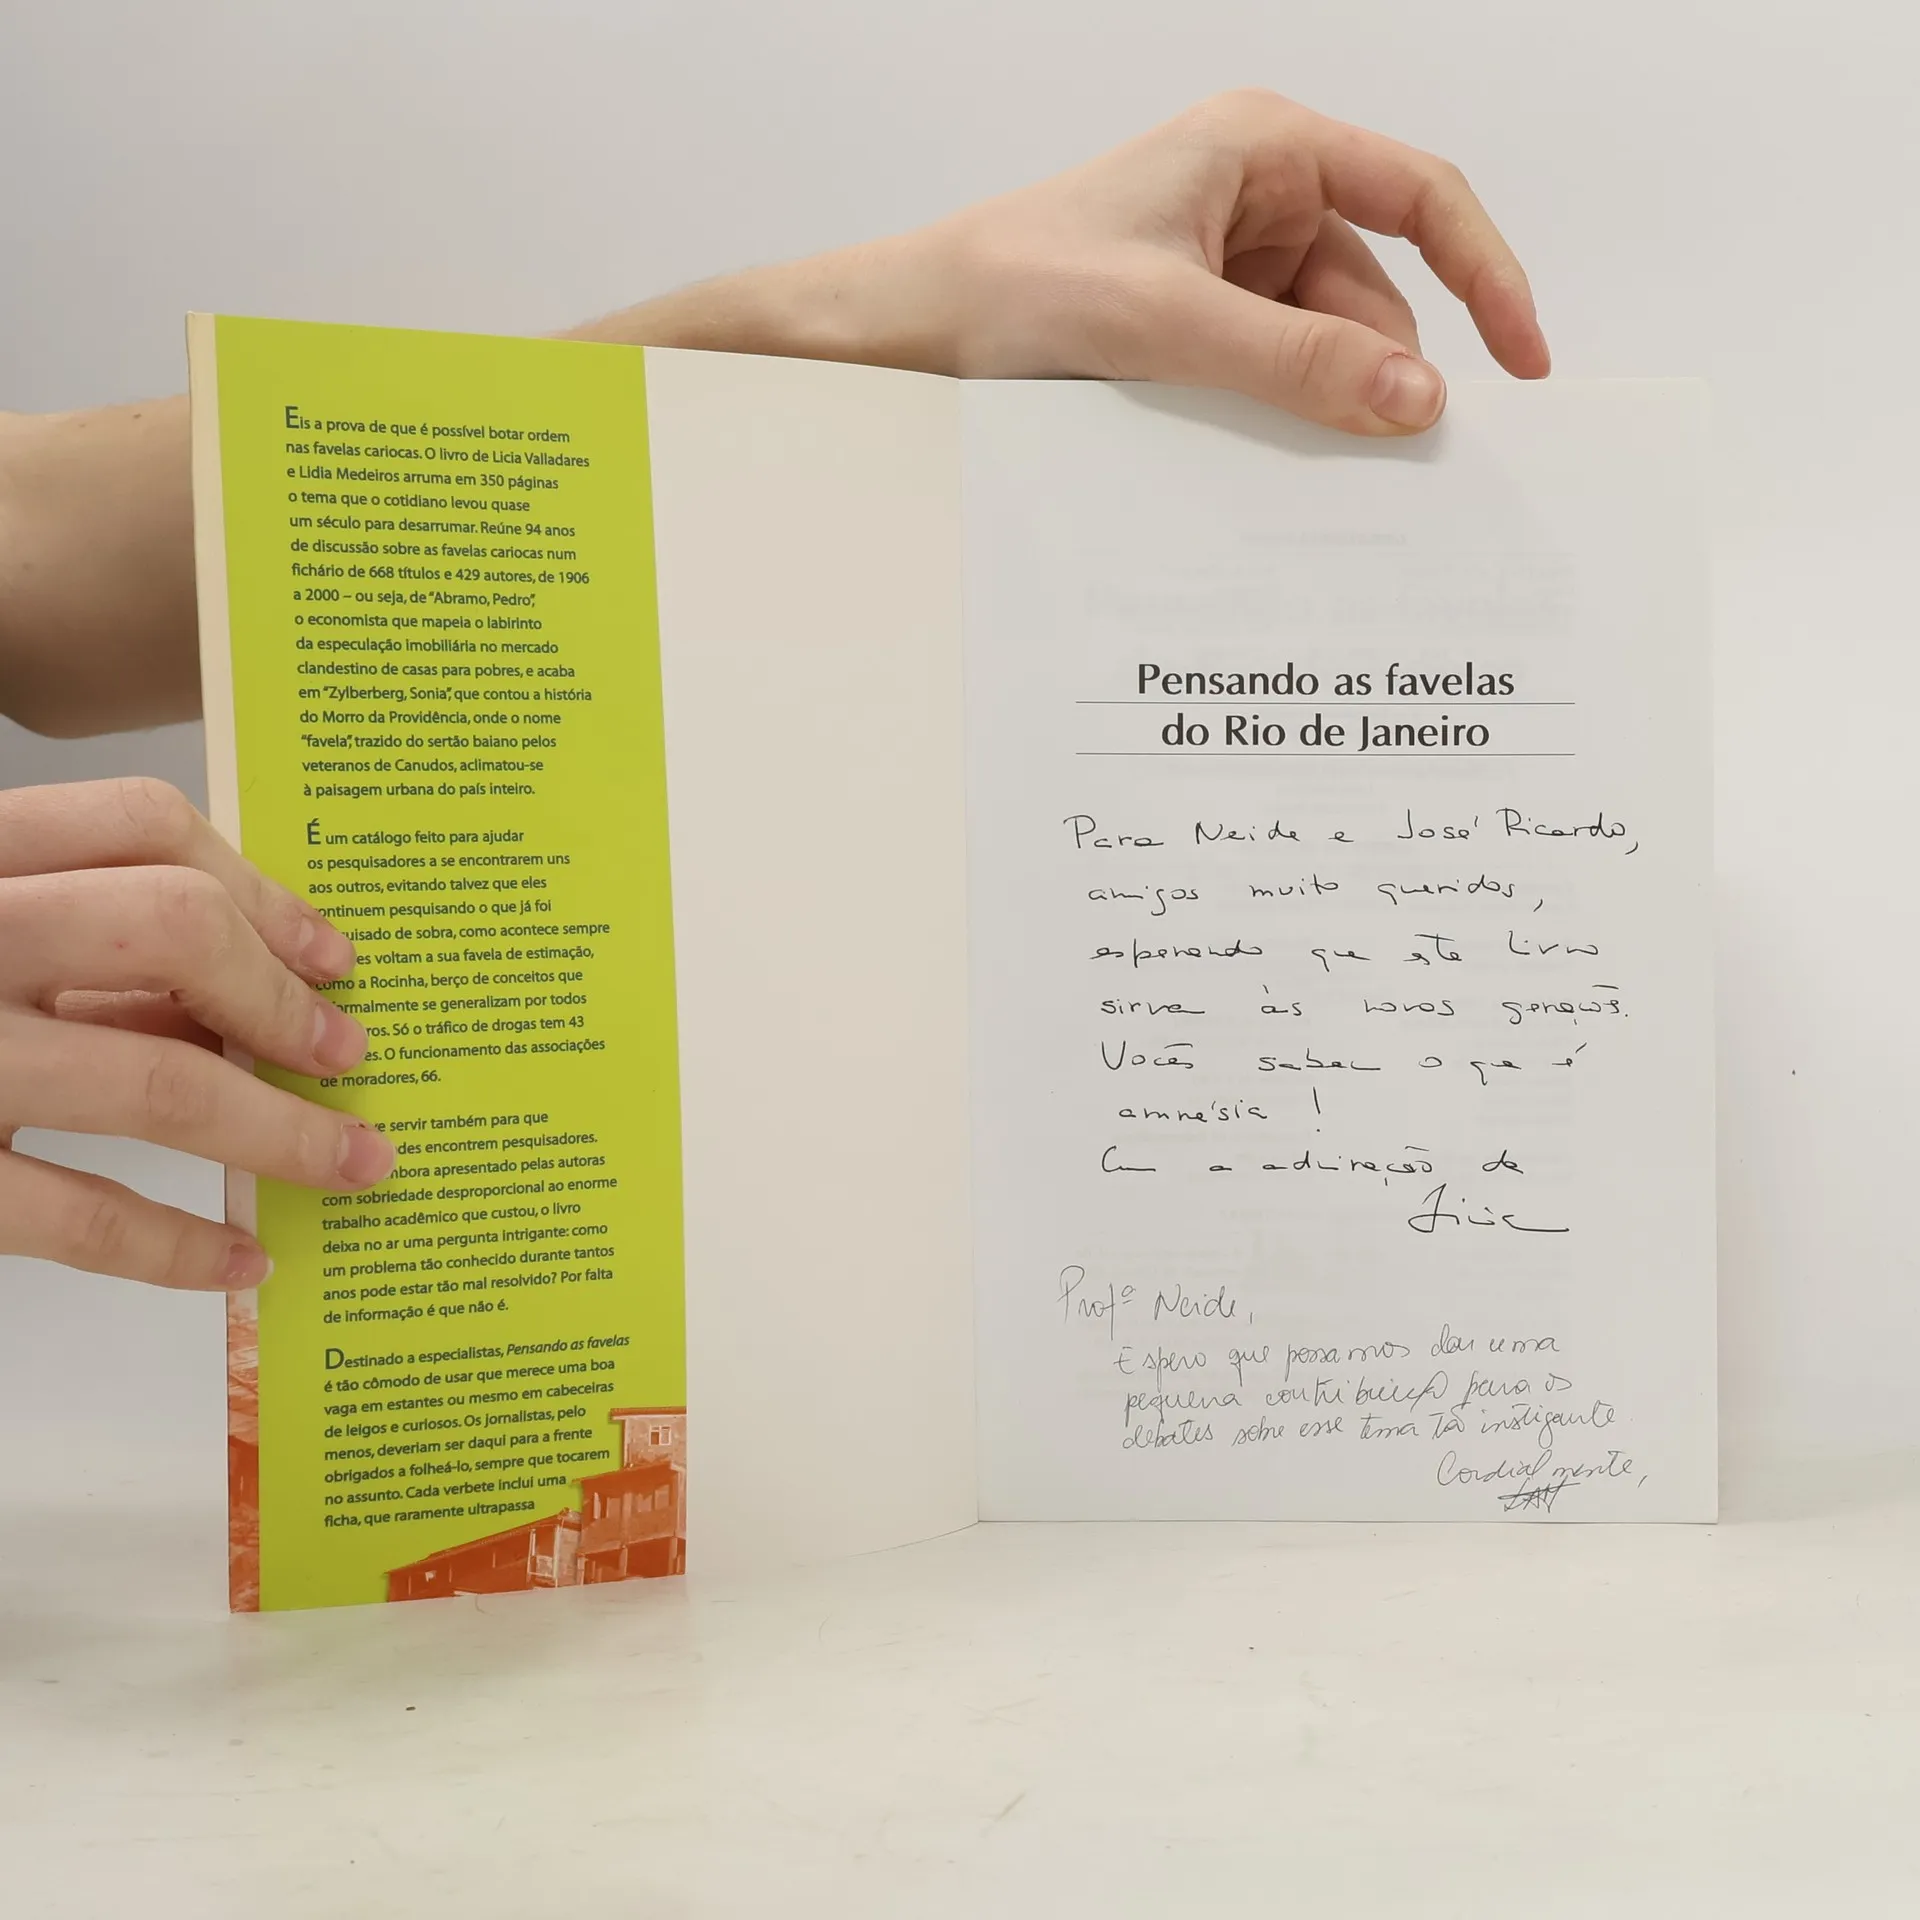 Eis a prova de que é possível botar ordem
nas favelas cariocas. O livro de Licia Valladares
e Lidia Medeiros arruma em 350 páginas
o tema que o cotidiano levou quase
um século para desarrumar. Reúne 94 anos
de discussão sobre as favelas cariocas num
fichário de 668 títulos e 429 autores, de 1906
a 2000 – ou seja, de “Abramo, Pedro”,
o economista que mapeia o labirinto
da especulação imobiliária no mercado
clandestino de casas para pobres, e acaba
em “Zylberberg, Sonia”, que contou a história
do Morro da Providência, onde o nome
“favela”, trazido do sertão baiano pelos
veteranos de Canudos, aclimatou-se
à paisagem urbana do país inteiro.
É um catálogo feito para ajudar
os pesquisadores a se encontrarem uns
aos outros, evitando talvez que eles
ontinuem pesquisando o que já foi
uisado de sobra, como acontece sempre
es voltam a sua favela de estimação,
como a Rocinha, berço de conceitos que
ormalmente se generalizam por todos
ros. Só o tráfico de drogas tem 43
es. O funcionamento das associações
de moradores, 66.
ve servir também para que
des encontrem pesquisadores.
mbora apresentado pelas autoras
com sobriedade desproporcional ao enorme
trabalho acadêmico que custou, o livro
deixa no ar uma pergunta intrigante: como
um problema tão conhecido durante tantos
anos pode estar tão mal resolvido? Por falta
de informação é que não é.
Destinado a especialistas, Pensando as favelas
é tão cômodo de usar que merece uma boa
vaga em estantes ou mesmo em cabeceiras
de leigos e curiosos. Os jornalistas, pelo
menos, deveriam ser daqui para a frente
obrigados a folheá-lo, sempre que tocarem
no assunto. Cada verbete inclui uma
ficha, que raramente ultrapassa
Pensando as favelas
do Rio de Janeiro
Para Neide e José Ricardo,
amigos muito queridos,
esperando que este livro
sirva às novas gerações.
Vocês sabem o que é
amnésia !
Com a admiração de
Licia
Profª Neide,
Espero que possamos dar uma
pequena contribuição para os
debates sobre esse tema tão instigante.
Cordialmente,